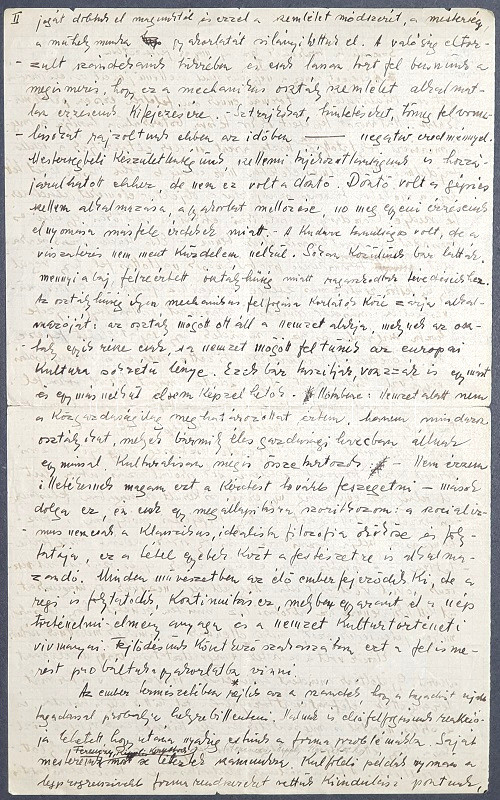 II jogát dobtuk el magunktól és ezzel a szemlélet módszerét, a mesterség,
a műhely munka gyakorlatát silányítottuk el. A valóság eltor-
zult szándékaink tükrében és csak lassan tört fel bennünk a
megismerés, hogy ez a mechanikus osztály szemlélet alkalmat-
lan érzéseink kifejezésére. Sztrájkokat, tüntetéseket, tömeg felvonu-
lásokat rajzoltunk ebben az időben negatív eredménnyel.
Mesterségbeli készületlenségünk, szellemi tájékozatlanságunk is hozzá-
járulhatott ehhez, de nem ez volt a döntő. Döntő volt a gépies
szellem alkalmazása, a gyakorlat mellőzése, no meg egyéni érzéseink
elnyomása másféle érdekek miatt. - A kudarc tanulságos volt, de a
visszatérés nem ment küzdelem nélkül. Sokan közülünk bár látták
mennyi a baj, félreértett osztályhűség miatt ragaszkodtak tévedéseikhez.
Az osztályhűség ilyen mechanikus felfogása korlátok közé zárja alkal-
mazóját: az osztály mögött ott áll a nemzet alakja, melynek az osz-
tály egyik része csak, s a nemzet mögött feltűnik az európai
kultura sokrétű lénye. Ezek bár taszítják, vonzzák is egymást
és egymás nélkül el sem képzelhetők. nemzet alatt nem
a közgazdaságilag meghatározottat értem, hanem mindazon
osztályokat, melyek bármily éles gazdasági harcban állnak
egymással kulturálisan mégis összetartozók. - Nem érzem
illetékesnek magam ezt a kérdést tovább feszegetni - mások
dolga ez, én csak egy megállapításra szorítkozom: a szocializ-
mus nemcsak a klasszikus, idealista filozófia örököse és foly-
tatója, ez a tétel egyebek közt a festészetre is alkalma-
zandó. Minden művészetben az élő ember fejeződik ki, de a
régi is folytatódik, kontinuitás ez, melyben egyaránt él a nép
történelmi élmény anyaga és a nemzet kulturtörténeti
vívmányai. Fejlődésünk következő szakaszában ezt a felisme-
rést próbáltuk gyakorlatba vinni.
Az ember természetében rejlik az a szándék hogy a tagadást újabb
tagadással próbálja helyrebillenteni. Nálunk is előző felfogásunk reakció-
ja lehetett hogy utána nyakig estünk a forma problémákba. Saját
mesterünk
Ferenczy
nem létezett számunkra. Külföldi példák nyomán a
legprogresszívebb forma rendszereket vettük kiindulási pontunk,